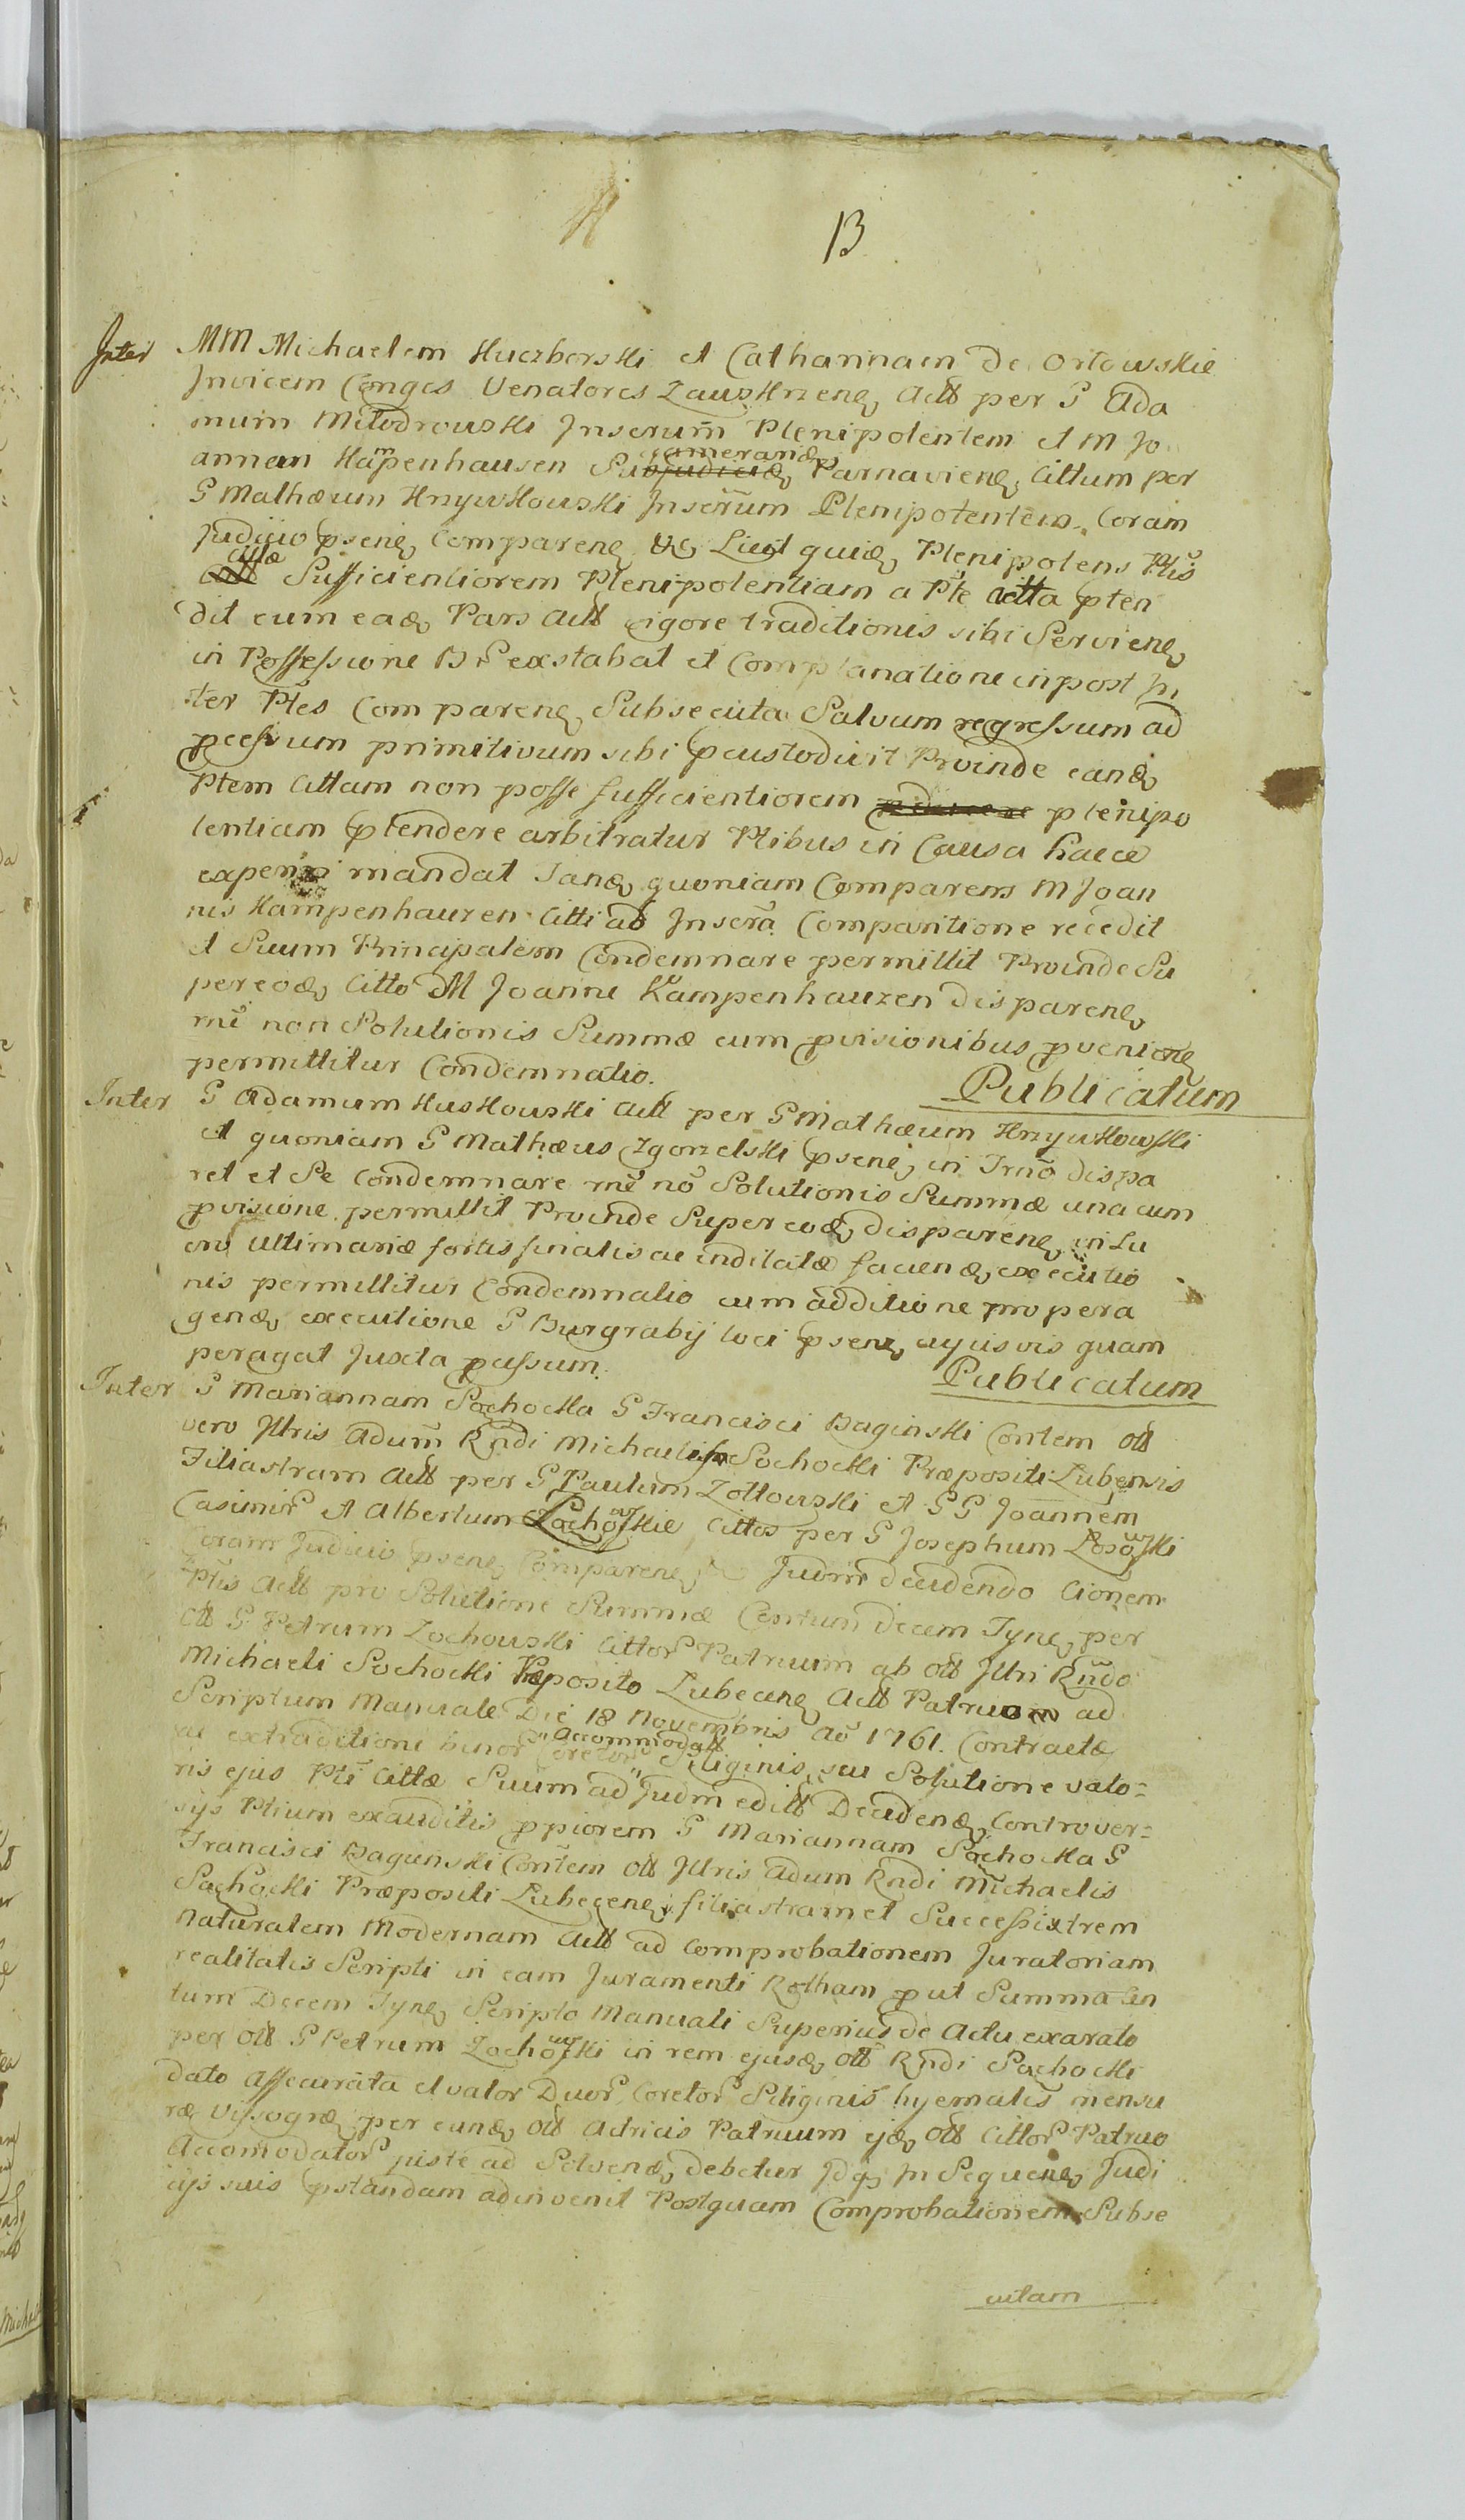 13
Inter MM Michaelem Huczborski et Catharinam de Orlowskie
Invicem Conges Venatores Zauskrzens Actt per G Ada
mum Mlodrowski Inserum Plenipotentem et M Jo
annem Kampenhausen Subjudicis camerarium Parnaviens, Cittum per
G Mathæum Krzywkowski Inserum Plenipotentem. Coram
Judicio psens Comparens &c Licet quid Plenipotens Ptis
Actt cittæ Sufficientiorem Plenipotentiam a Pte citta pten
dit cum ead Pars Actt vigore traditionis sibi Serviens
in Possessione Br exstabat et Complanatione inpost In
ter Ptes Comparens Subsecuta Salvum regressum ad
pcessum primitivum sibi pcustodivit Proinde eand
Ptem Cittam non posse sufficientiorem plenipo
tentiam ptendere arbitratur Ptibus in Causa haece
experiri mandat Tand quoniam Comparens M Joan
nis Kampenhauzen Citti ab Inserta Comparitione recedit
et Suum Principalem Condemnare permittit Proinde Su
per eod Citto M Joanne Kampenhauzen disparens
rne non Solutionis Summæ cum pvisionibus pveniens
permittitur Condemnatio.
Publicatum
Inter G Adamum Huskowski Actt per G Mathæum Krzywkowski
et quoniam G Mathæus Zgorzelski psens in Trno dispa
ret et Se Condemnare rne no Solutionis Summæ una cum
pvisione permittit Proinde Super eod disparens in Lu
cro Ultimariæ fortis finalis ac indilatæ faciend executio
nis permittitur Condemnatio cum additione pro pera
gend executione G Burgrabij loci psens cujusvis quam
peragat Juxta pcssum.
Publicatum
Inter G Mariannam Sochocka G Francisci Baginski Contem Ott
vero Jllris Adum Rndi Michaelis Sochocki Præpositi Lubensis
Filiastram Actt per G Paulum Zoltowski et GG Joannem
Casimir et Albertum Zochowskie Cittos per G Josephum Losowski
Coram Judicio psens Comparens Judm decidendo Cionem
Ptis Actt pro Solutione Summæ Centum Decem Tyns per
Ott G Petrum Zochowski Cittor Patruum ab Ott Jllri Rndo
Michaeli Sochocki Præposito Lubecens Actt Patruum ad
Scriptum Manuale Die 18 Novembris Ao 1761. Contractæ
ac extraditione binor Coretor Accommodatt Siliginis, seu Solutione valo=
ris ejus Pti Cittæ Suum ad Judm editt Decidend, Controver=
sijs Ptium exauditis ppiorem G Mariannam Sochocka G
Francisci Bagunski Contem Ott Jllris Adum Rndi Michaelis
Sochocki Præpositi Lubecens filiastram et Successixtrem
naturalem Modernam Actt ad Comprobationem Juratoriam
realitatis Scripti in eam Juramenti Rotham put Summa Cen
tum Decem Tyns Scripto Manuali Superius de Actu exarato
per Ott G Petrum Zochowski in rem ejusd Ott Rndi Sochocki
dato Assecurata et valor Duor Coretor Siliginis hyemalis mensu
ræ Vissogræ per eund Ott Actricis Patruum ejd Ott Cittor Patruo
Accomodator juste ad Solvend debetur Idq In Sequens Judi
cijs suis pstandam adinvenit Postquam Comprobationem Subse
cutam